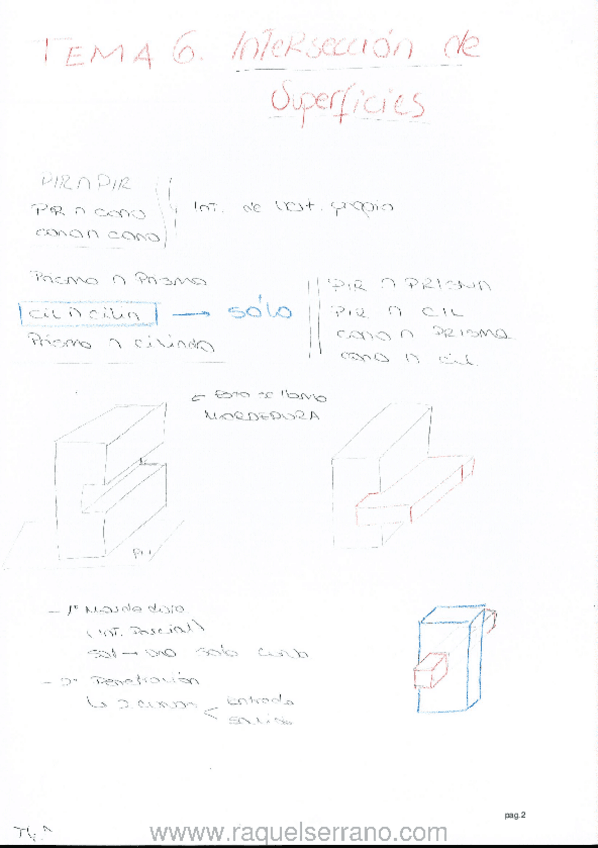 TEMA 6. Intersección de
Superficies
PIR ∩ PIR
PIR ∩ cono
cono ∩ cono
Int. de vért. propio
Prisma ∩ Prisma
CIL ∩ cilin → sólo
Prisma ∩ cilindro
PIR ∩ PRISMA
PIR ∩ CIL
cono ∩ PRISMA
cono ∩ cil.
← Esto se llama
MORDEDURA
- 1º Mordedura
(int. Parcial)
sol → una sola curva
- 2º Penetración
↳ 2 curvas < Entrada
Salida
pag.2
www.raquelserrano.com